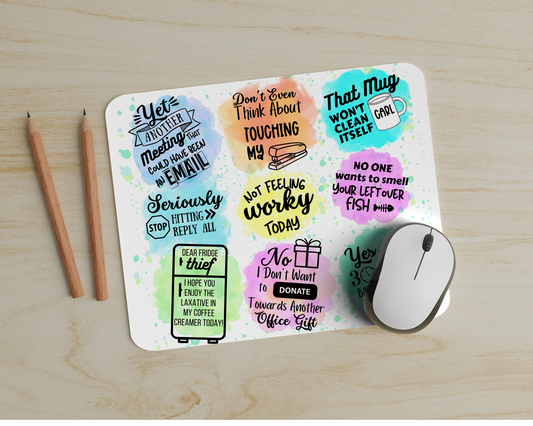 Yet
ANOTHER
Meeting THAT
COULD HAVE BEEN
AN EMAIL
Don't Even
Think About
TOUCHING
MY
That Mug
WON'T
CLEAN
ITSELF
CARL
Seriously
STOP HITTING
REPLY ALL
NOT FEELING
worky
TODAY
NO ONE
wants to smell
YOUR LEFTOVER
FISH
DEAR FRIDGE
thief
I HOPE YOU
ENJOY THE
LAXATIVE IN
MY COFFEE
CREAMER TODAY!
No
I Don't Want
to DONATE
Towards Another
Office Gift
Yes